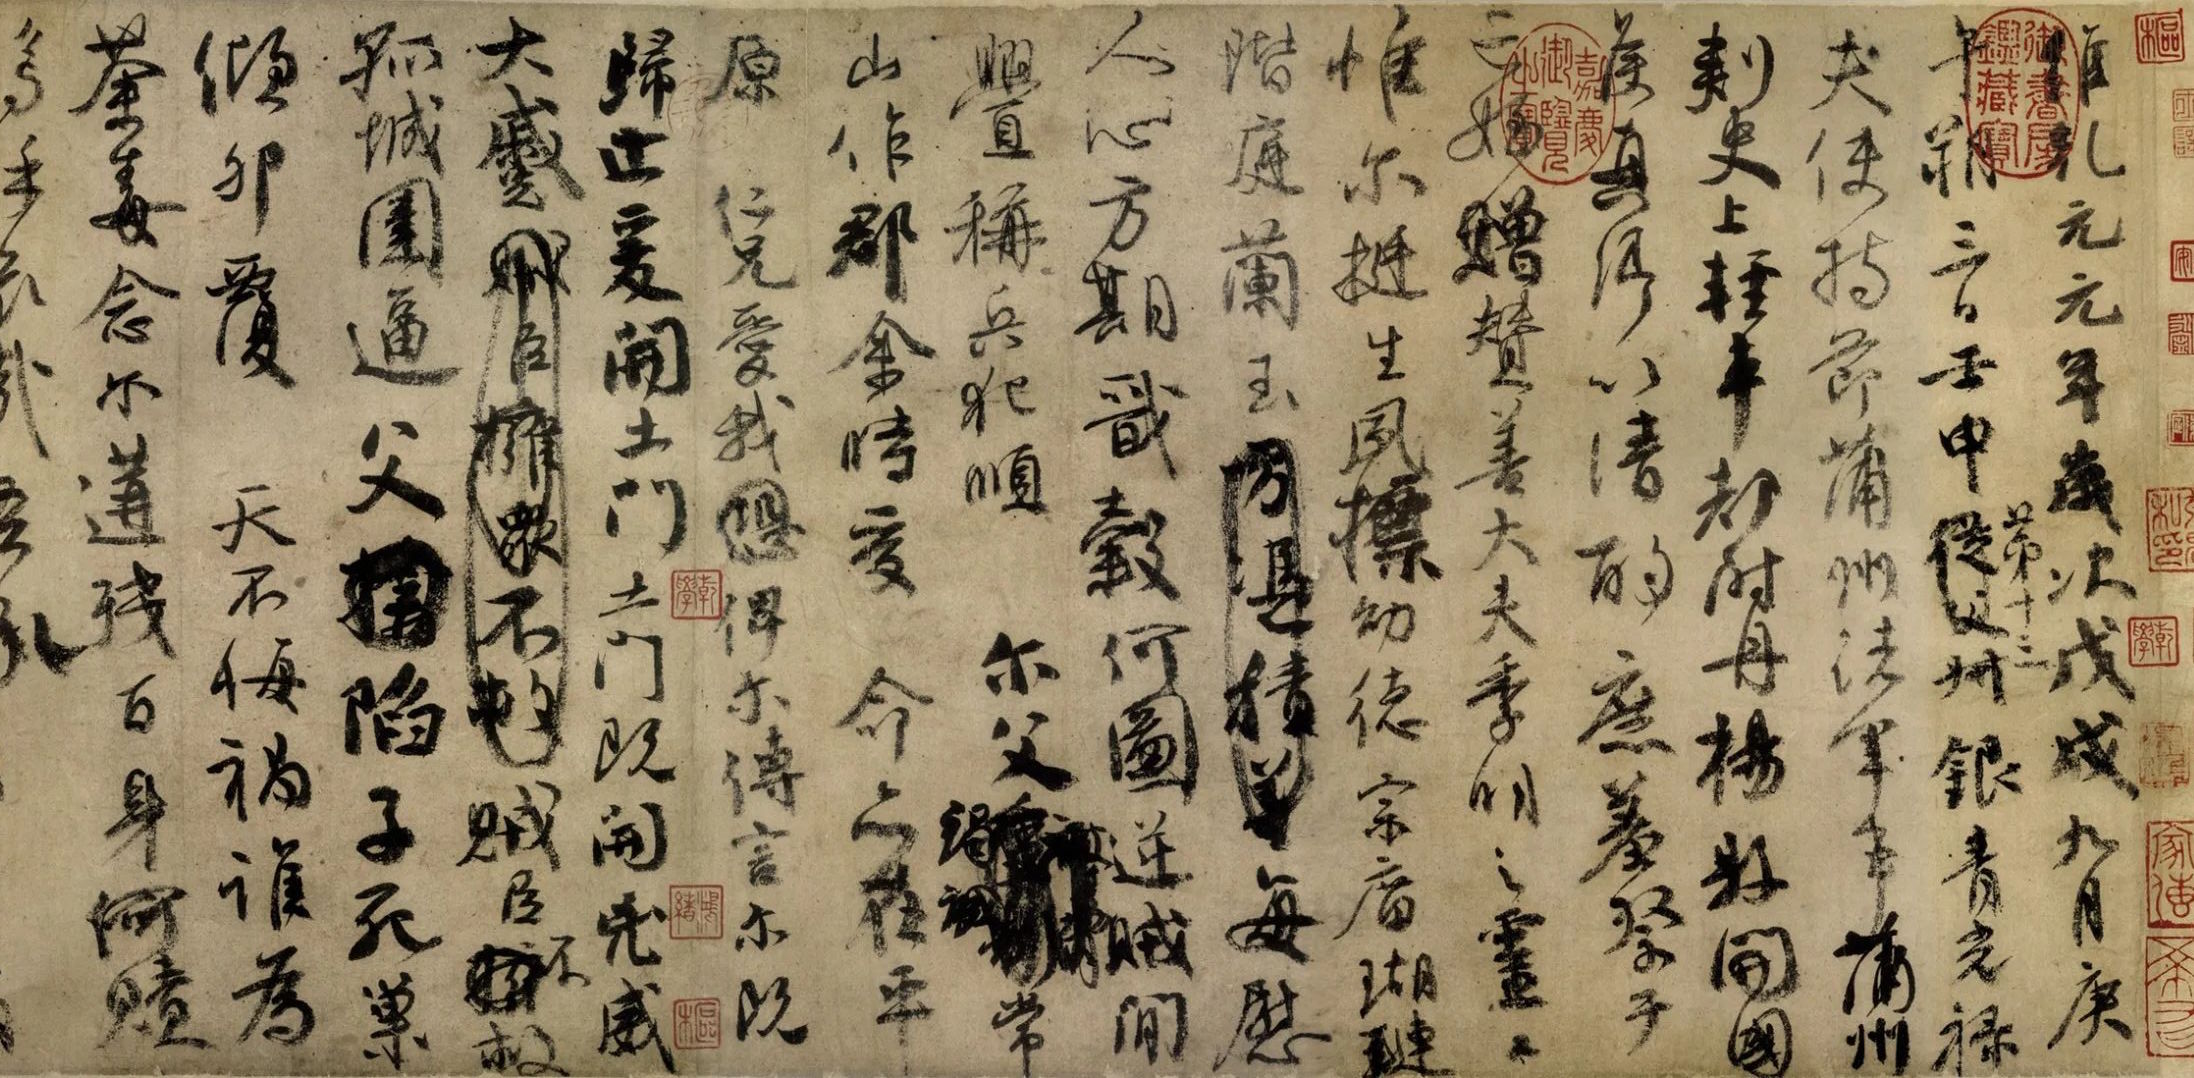 維乾元元年歲次戊戌九月庚
午朔三日壬申第十三從父叔銀青光祿
夫使持節蒲州諸軍事蒲州
刺史上輕車都尉丹楊縣開國
侯真卿以清酌庶羞祭于
亡姪贈贊善大夫季明之靈曰
惟尔挺生夙標幼德宗廟瑚璉
階庭蘭玉方憑積善每慰
人心方期戩穀何圖逆賊間
舋稱兵犯順尔父竭誠常
山作郡余時受命亦在平
原仁兄愛我恐俾尔傳言尔既
歸止爰開土門土門既開兇威
大蹙賊臣擁眾不救賊臣不救
孤城圍逼父陷子死巢
傾卵覆天不悔禍誰為
荼毒念尔遘殘百身何贖
嗚乎哀哉吾承
御書房鑑藏寶
嘉慶御覽之寶
乾學
乾學
樞
樞